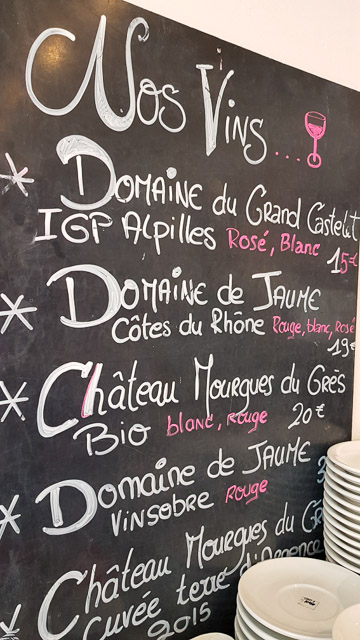 Nos Vins....
* Domaine du Grand Castelet
IGP Alpilles Rosé, Blanc 15€
* Domaine de Jaume
Côtes du Rhône Rouge, blanc, rosé
19€
* Château Mourgues du Grès
Bio blanc, rouge 20€
* Domaine de Jaume
Vinsobre Rouge
* Château Mourgues du
Cuvée terre d'Argence
2015